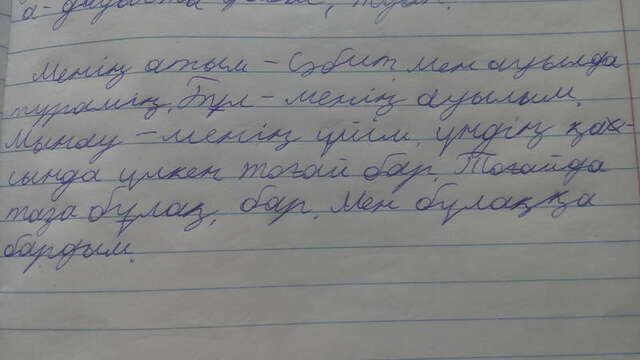 а - дауысты
Менің атым - Сәбит, мен ауылда
тұрамың. Бұл - менің ауылым.
Мынау - менің үйім, үндің қа-
сында үлкен тоғай бар. Тоғайда
таза бұлақ, бар. Мен бұлаққа
бардым.